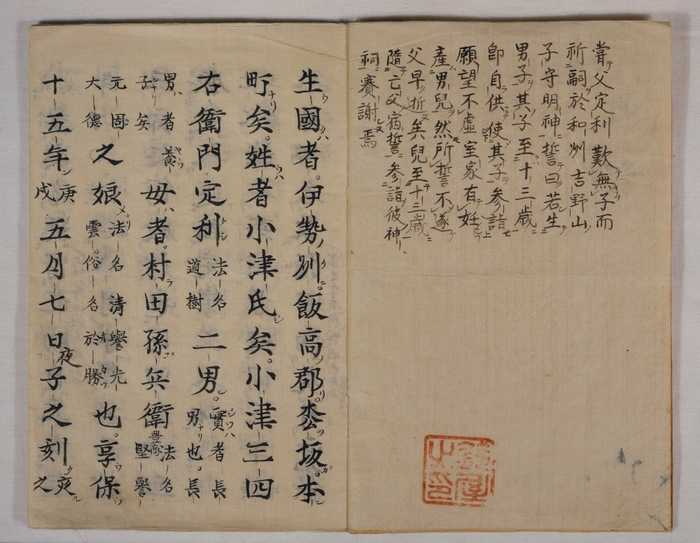 嘗父定利歎無子而
祈嗣於和州吉野山
子守明神誓曰若生
男子其子至十三歳
即自供使其子參詣
願望不虚室家有妊
產男兒然所誓不遂
父早逝矣兒至十三歳
隨亡父宿誓參詣彼神
祠賽謝焉
鈴屋之印
生國者伊勢州飯高郡枩坂本
町矣姓者小津氏矣小津三四
右衛門定利法名道樹二男實者長男也長
男者養子矣母者村田孫兵衛豊商法名堅譽
元固大德之娘法名清譽光雲俗名於勝也享保
十五年庚戌五月七日夜子之刻爽之